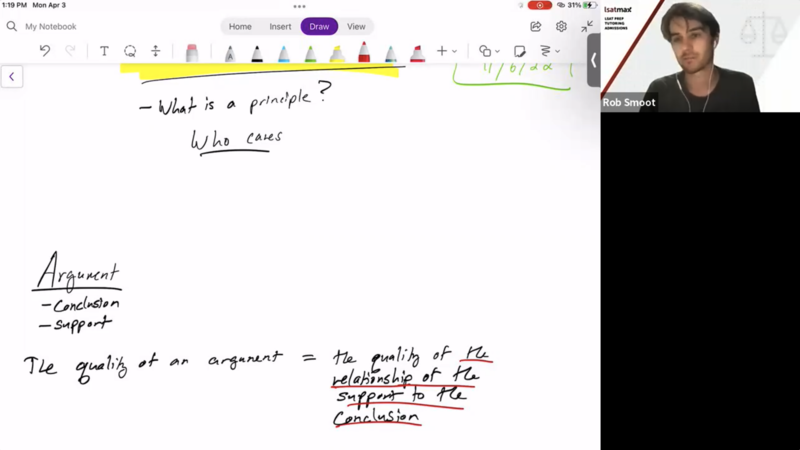 1:19 PM Mon Apr 3
31%
My Notebook
Home Insert Draw View
11/6/22
- What is a principle?
Who cares
Argument
- Conclusion
- support
The quality of an argument = the quality of the
relationship of the
support to the
Conclusion
lsatmax
LSAT PREP
TUTORING
ADMISSIONS
Rob Smoot